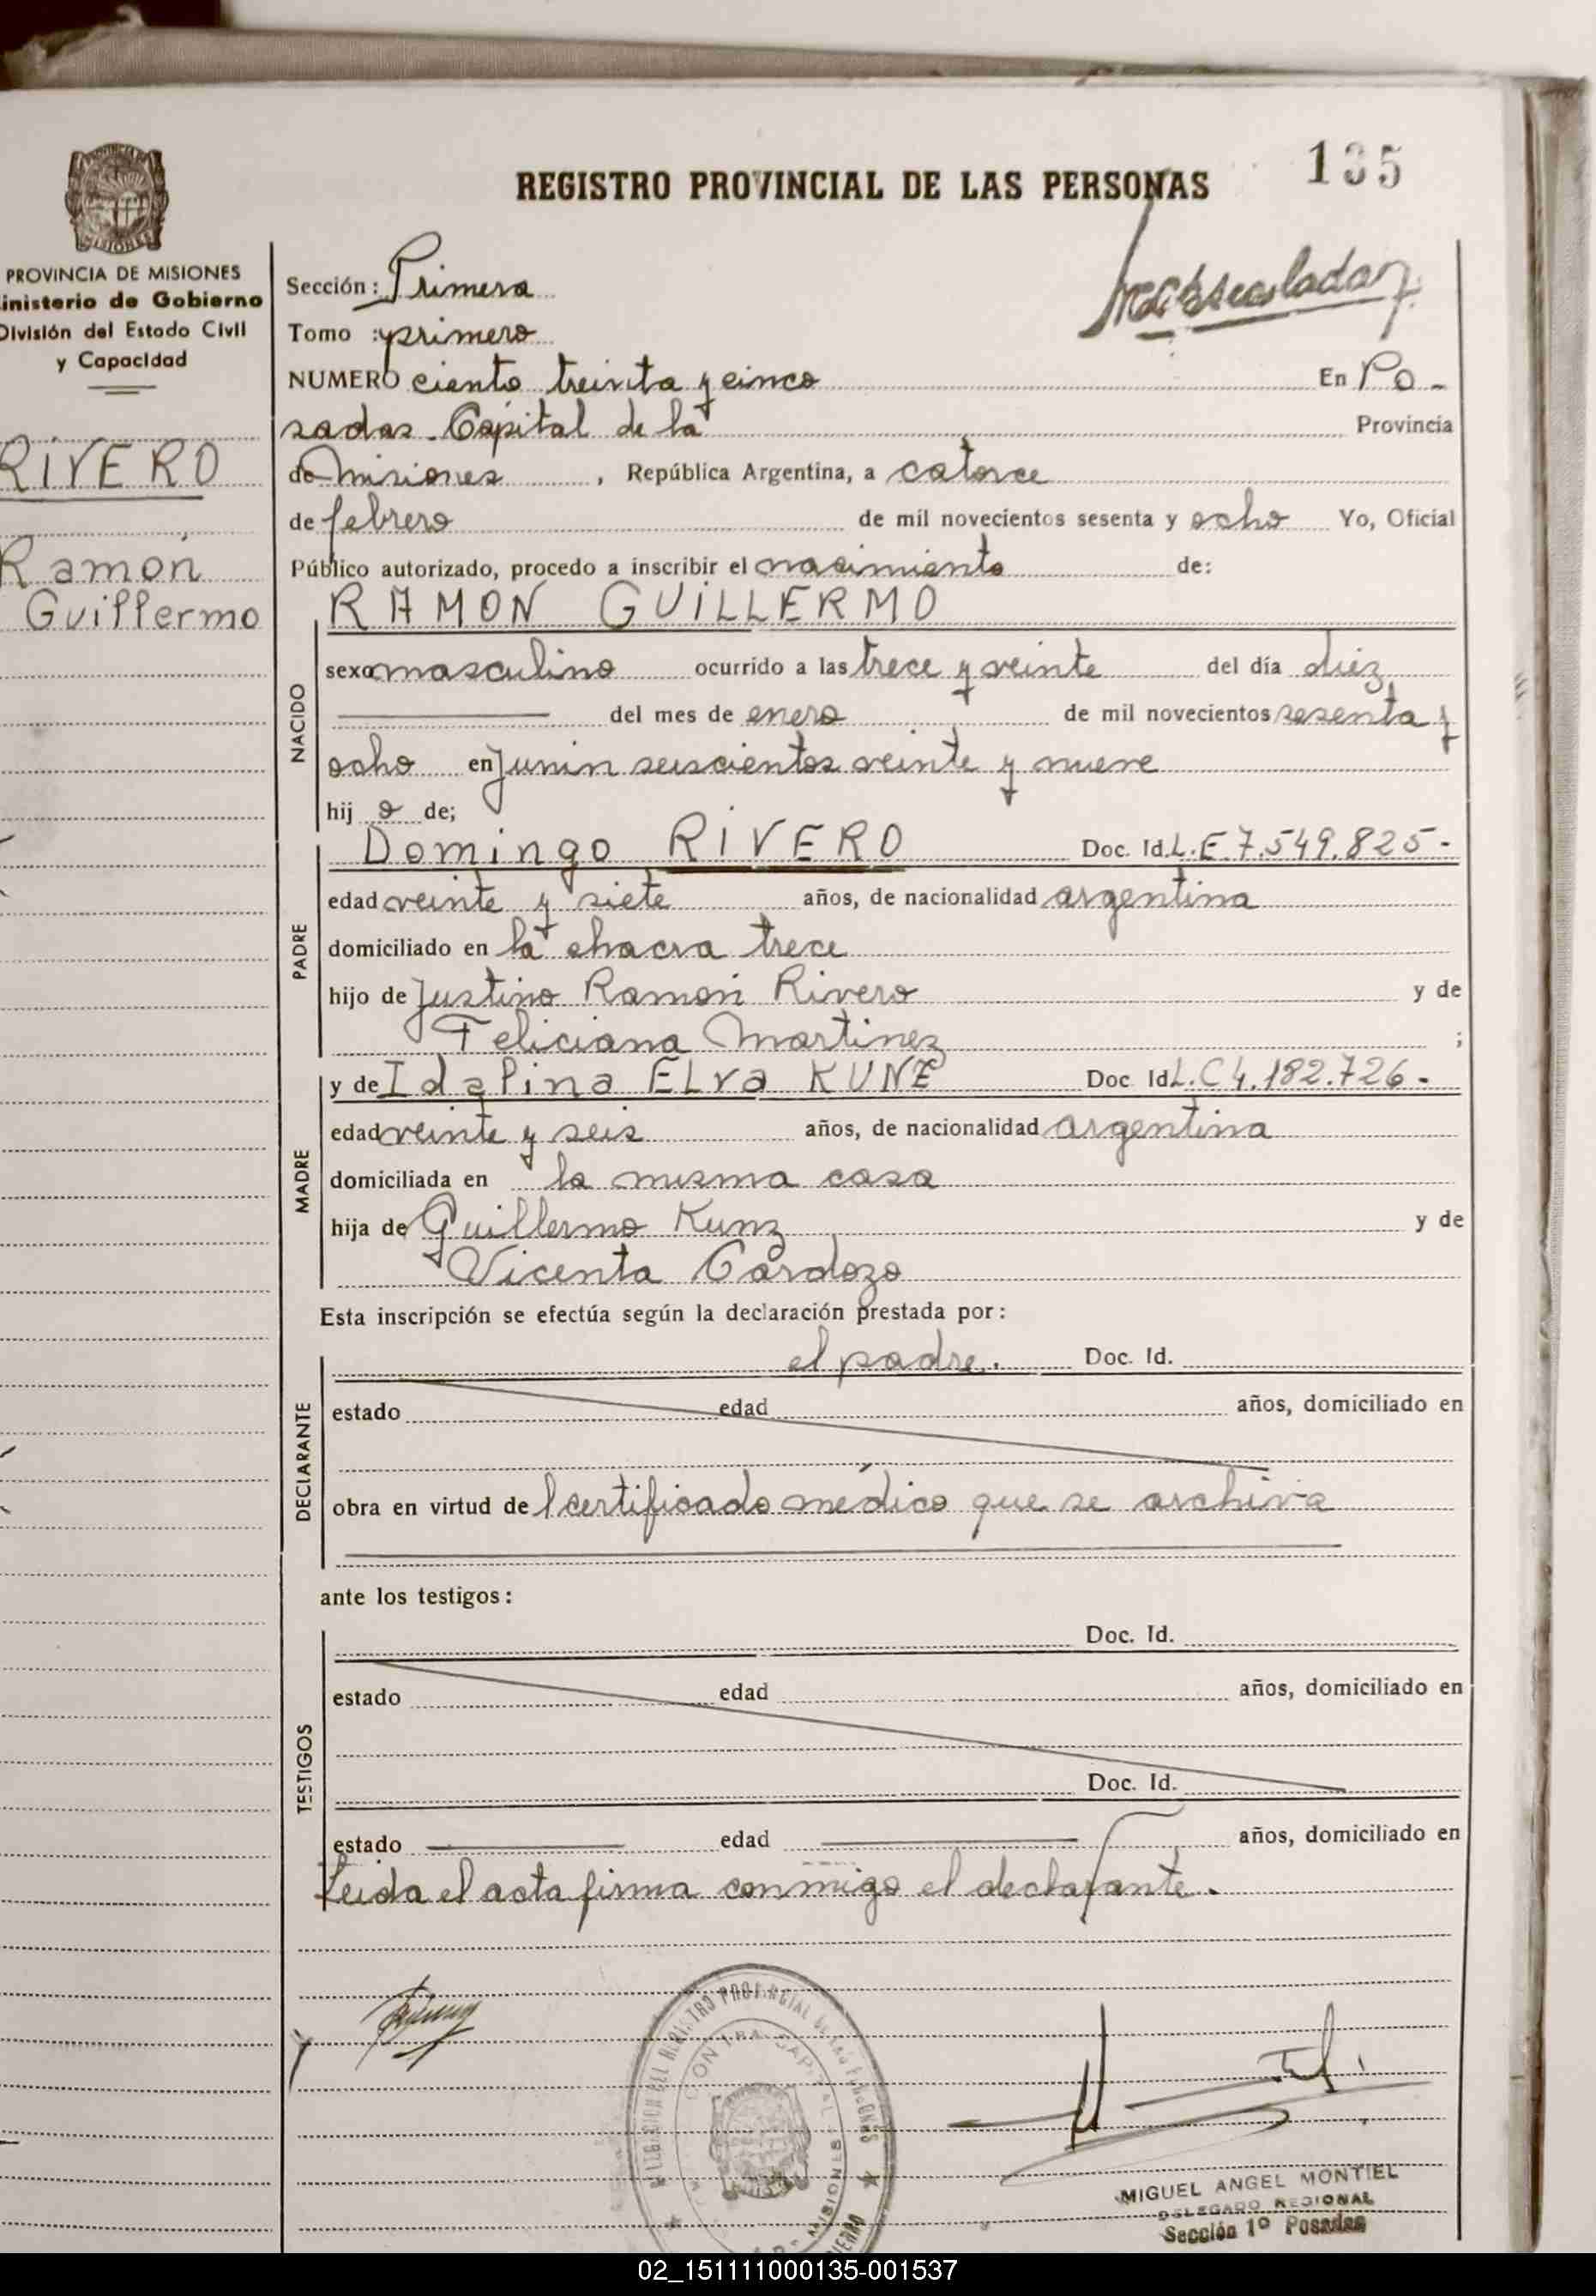 135
REGISTRO PROVINCIAL DE LAS PERSONAS
PROVINCIA DE MISIONES
inisterio de Gobierno
División del Estado Civil
y Capacidad
RIVERO
Ramón
Guillermo
Sección: Primera
Tomo : primero
NUMERO ciento treinta y cinco En Po-
sadas. Capital de la Provincia
de Misiones, República Argentina, a catorce
de febrero de mil novecientos sesenta y ocho Yo, Oficial
Público autorizado, procedo a inscribir el nacimiento de:
RAMON GUILLERMO
NACIDO
sexo masculino ocurrido a las trece y veinte del día diez
del mes de enero de mil novecientos sesenta y
ocho en Junin seiscientos veinte y nueve
hij o de;
PADRE
Domingo RIVERO Doc. Id. L.E 7.549.825-
edad veinte y siete años, de nacionalidad argentina
domiciliado en la chacra trece
hijo de Justino Ramón Rivero y de
Feliciana Martinez ;
MADRE
y de Idalina ELVA KUNZ Doc Id L.C 4.182.726-
edad veinte y seis años, de nacionalidad argentina
domiciliada en la misma casa
hija de Guillermo Kunz y de
Vicenta Cardozo
Esta inscripción se efectúa según la declaración prestada por:
DECLARANTE
el padre. Doc. Id.
estado edad años, domiciliado en
obra en virtud de l certificado médico que se archiva
ante los testigos:
TESTIGOS
Doc. Id.
estado edad años, domiciliado en
Doc. Id.
estado edad años, domiciliado en
Leida el acta firma conmigo el declarante.
REGISTRO PROVINCIAL DE LAS PERSONAS
MISIONES
MIGUEL ANGEL MONTIEL
DELEGADO REGIONAL
Sección 1º Posadas
02_151111000135-001537